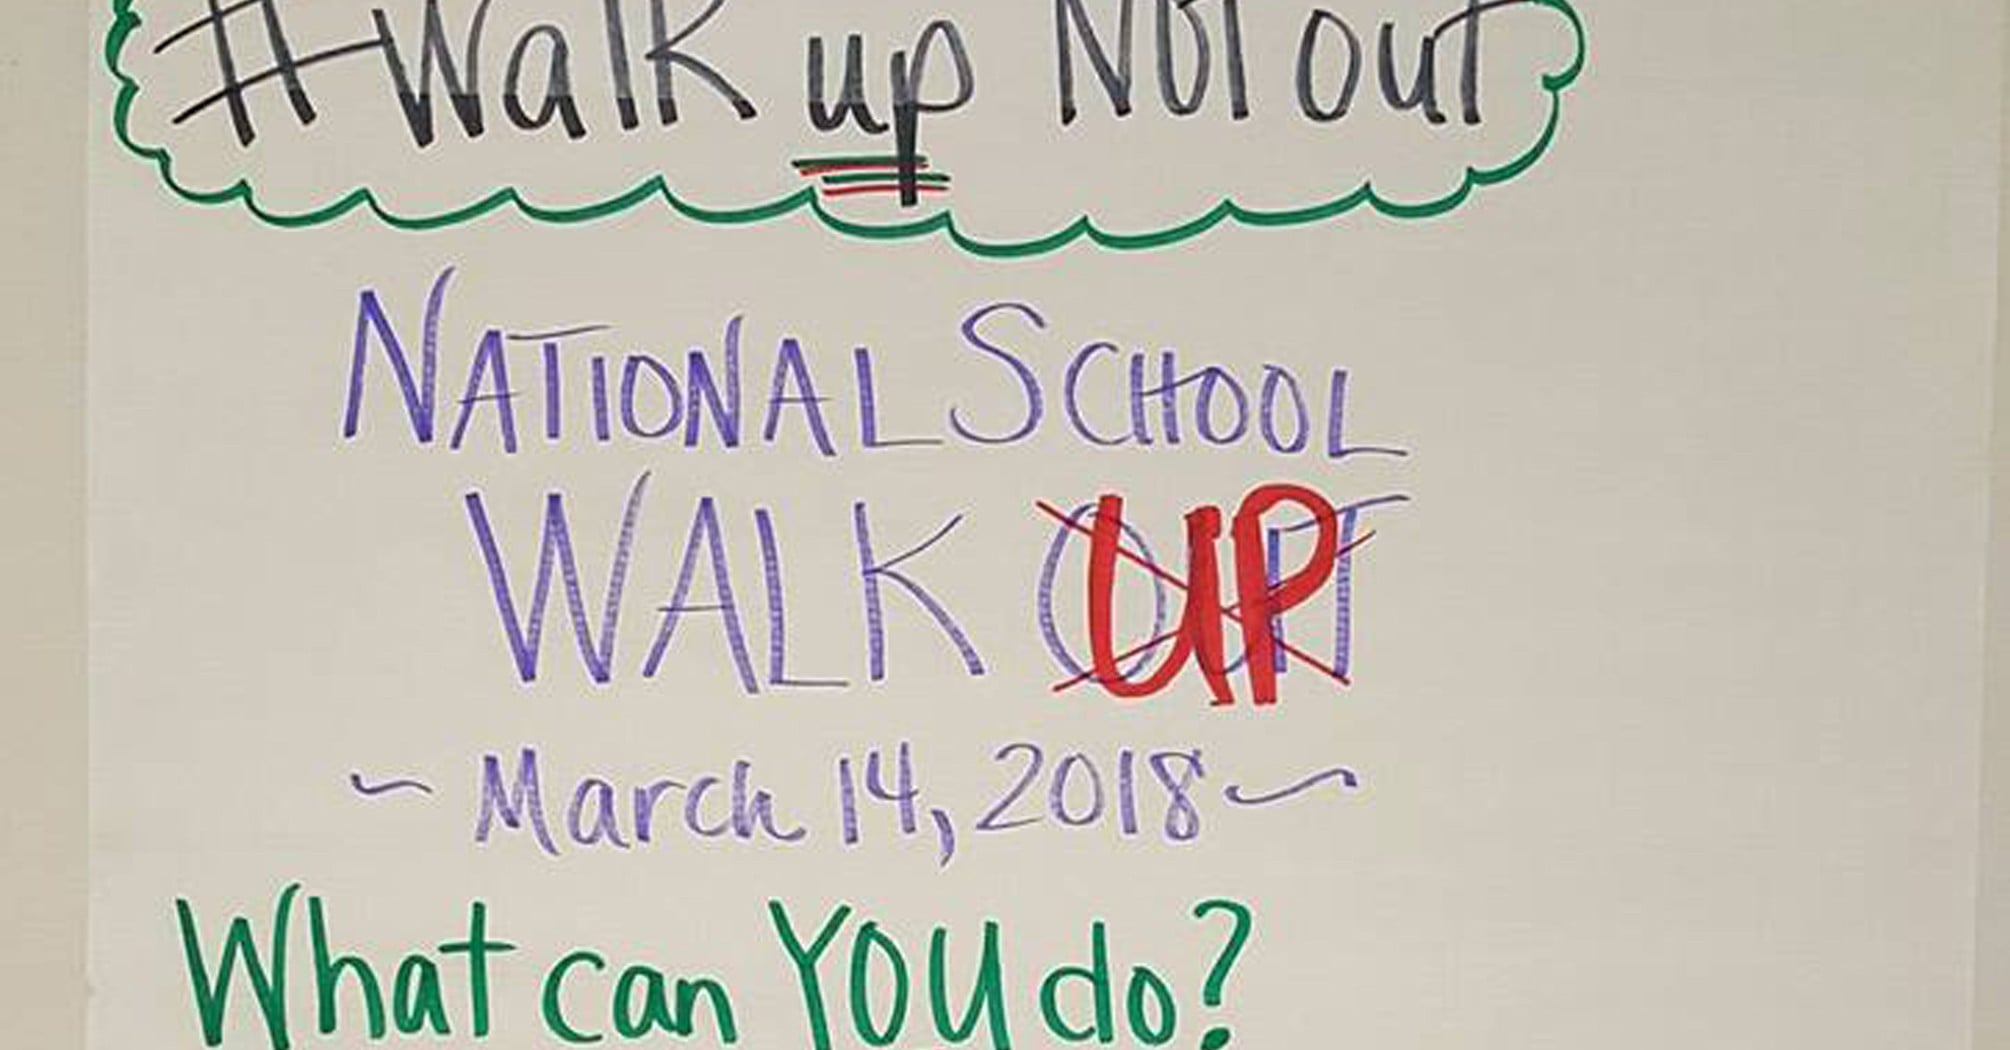 #Walk up Not out
NATIONAL SCHOOL
WALK OUT UP
~ March 14, 2018 ~
What can YOU do?